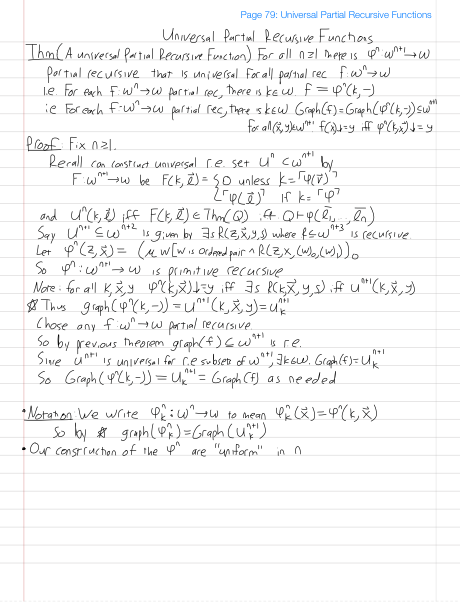 Page 79: Universal Partial Recursive Functions
Universal Partial Recursive Functions
Thm (A universal Partial Recursive Function) For all n≥1 there is φⁿ: ωⁿ⁺¹→ω
partial recursive that is universal for all partial rec f: ωⁿ→ω
i.e. For each f: ωⁿ→ω partial rec, there is k∈ω. f = φⁿ(k,−)
i.e For each f: ωⁿ→ω partial rec, there is k∈ω Graph(f)=Graph(φⁿ(k,−))⊆ωⁿ⁺¹
for all (x⃗,y)∈ωⁿ⁺¹ f(x⃗)↓=y iff φⁿ(k,x⃗)↓=y
Proof: Fix n≥1.
Recall can construct universal r.e. set Uⁿ ⊂ωⁿ⁺¹ by
F: ωⁿ⁺¹→ω be F(k,l⃗) = { 0 unless k=⌜φ(v⃗)⌝
⌜φ(l⃗)⌝ if k=⌜φ⌝
and Uⁿ(k,l⃗) iff F(k,l⃗)∈Thm(Q) iff Q⊢φ(l̄₁,...,l̄ₙ)
Say Uⁿ⁺¹ ⊆ωⁿ⁺² is given by ∃s R(z,x⃗,y,s) where R⊆ωⁿ⁺³ is recursive.
Let φⁿ(z,x⃗) = (μw[w is ordered pair ∧ R(z,x,(w)₀,(w)₁)])₀
So φⁿ: ωⁿ⁺¹→ω is primitive recursive
Note: for all k,x⃗,y φⁿ(k,x⃗)↓=y iff ∃s R(k,x⃗,y,s) iff Uⁿ⁺¹(k,x⃗,y)
Thus graph(φⁿ(k,−)) = Uⁿ⁺¹(k,x⃗,y)=Uₖⁿ⁺¹
Chose any f: ωⁿ→ω partial recursive.
So by previous theorem graph(f)⊆ωⁿ⁺¹ is r.e.
Since Uⁿ⁺¹ is universal for r.e subsets of ωⁿ⁺¹, ∃k∈ω. Graph(f)=Uₖⁿ⁺¹
So Graph(φⁿ(k,−))=Uₖⁿ⁺¹=Graph(f) as needed
• Notation: We write φₖⁿ: ωⁿ→ω to mean φₖⁿ(x⃗)=φⁿ(k,x⃗)
So by graph(φₖⁿ)=Graph(Uₖⁿ⁺¹)
• Our construction of the φⁿ are "uniform" in n